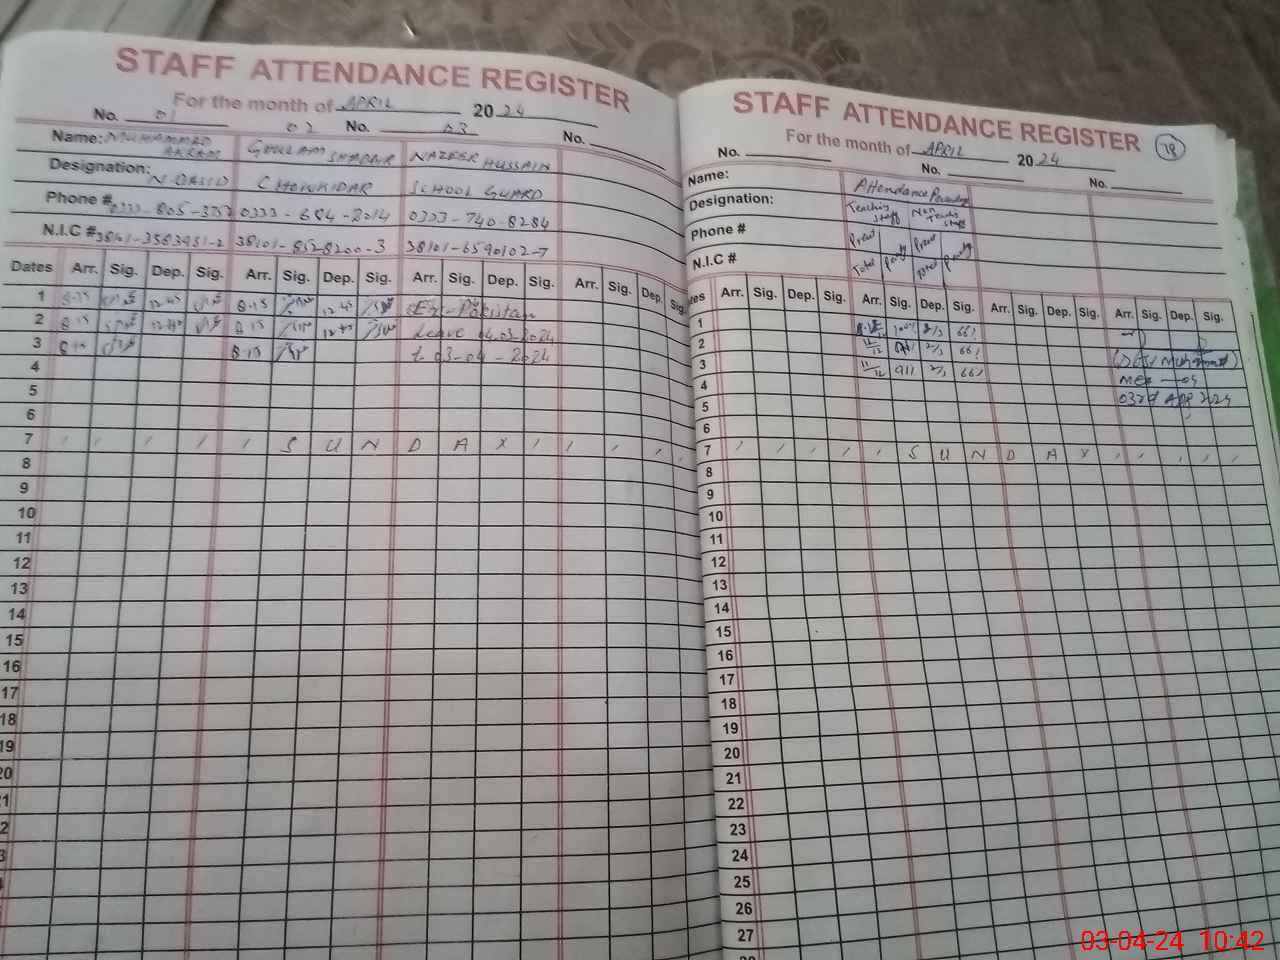 STAFF ATTENDANCE REGISTER
For the month of APRIL 2024
No. 01 02 No. 03 No.
Name: MUHAMMAD AKRAM GHULAM SHABBIR NAZEER HUSSAIN
Designation: N-QASID CHOWKIDAR SCHOOL GUARD
Phone # 0333-684-2014 0323-740-8284
N.I.C # 38101-3583951-2 38101-8528200-3 38101-6590102-7
Dates Arr. Sig. Dep. Sig. Arr. Sig. Dep. Sig. Arr. Sig. Dep. Sig. Arr. Sig. Dep. Sig.
1 8-15 12-45 8-15 12-45 Ex-Pakistan
2 8-15 12-45 8-15 12-45 Leave 04.03.2024
3 8-15 8-15 t 03-04-2024
4
5
6
7 S U N D A Y
8
9
10
11
12
13
14
15
16
17
18
19
20
STAFF ATTENDANCE REGISTER
For the month of APRIL 2024 78
No. No. No.
Name: Attendance
Designation: Teaching Staff Non Teaching Staff
Phone #
N.I.C # Total Total
Arr. Sig. Dep. Sig. Arr. Sig. Dep. Sig. Arr. Sig. Dep. Sig. Arr. Sig. Dep. Sig.
1 100% 2/3 66%
2 12/12 2/3 66%
3 11/12 91% 2/3 66%
4
5
6
7 S U N D A Y
8
9
10
11
12
13
14
15
16
17
18
19
20
21
22
23
24
25
26
27
03-04-24 10:42